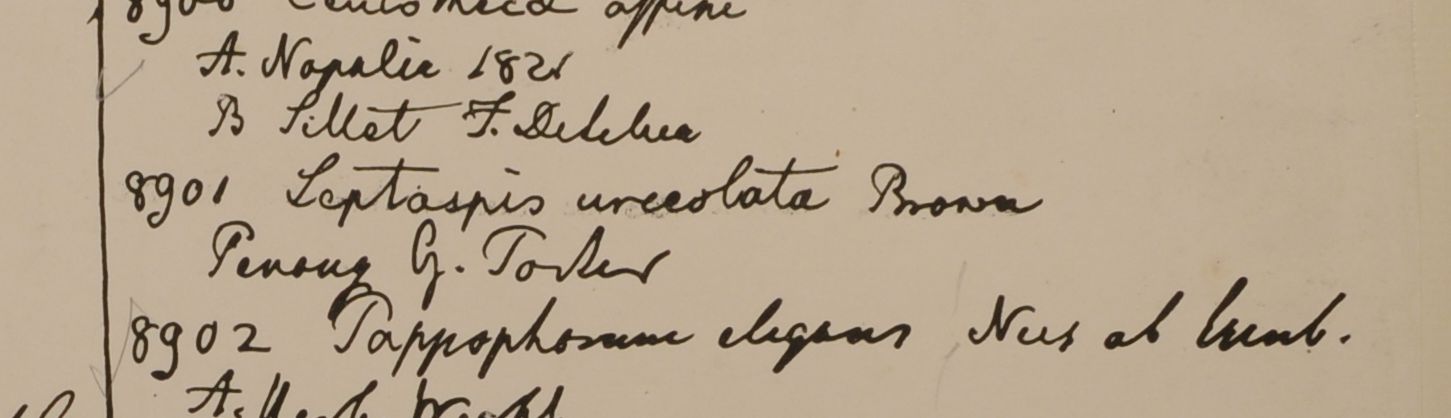 8900 affine
A. Napalia 1821
B Sillet F. De Silva
8901 Leptaspis urceolata Brown
Penang G. Porter
8902 Pappophorum elegans Nees ab Esenb.
A. Herb. Wight